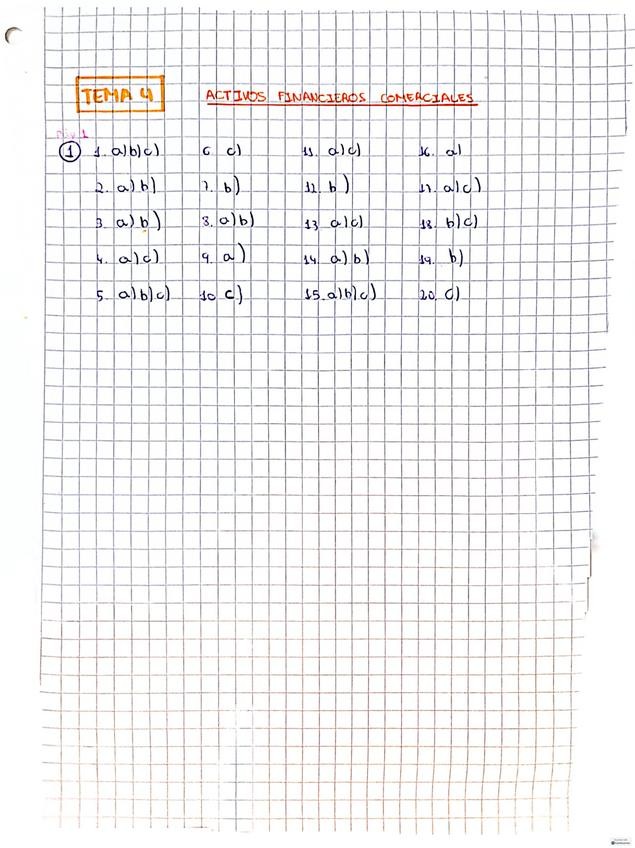 TEMA 4 ACTIVOS FINANCIEROS COMERCIALES
Niv 1
1 1. a)b)c) 6. c) 11. a)c) 16. a)
2. a)b) 7. b) 12. b) 17. a)c)
3. a)b) 8. a)b) 13 a)c) 18. b)c)
4. a)c) 9. a) 14. a)b) 19. b)
5. a)b)c) 10 c) 15. a)b)c) 20. c)